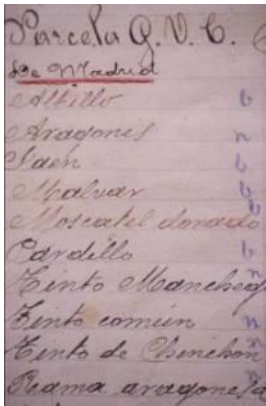 Parcela G. V. C.
De Madrid
Albillo b
Aragonés n
Jaén b
Malvar b
Moscatel dorado b
Pardillo b
Tinto Mancheg n
Tinto común n
Tinto de Chinchón n
Rama aragonesa n